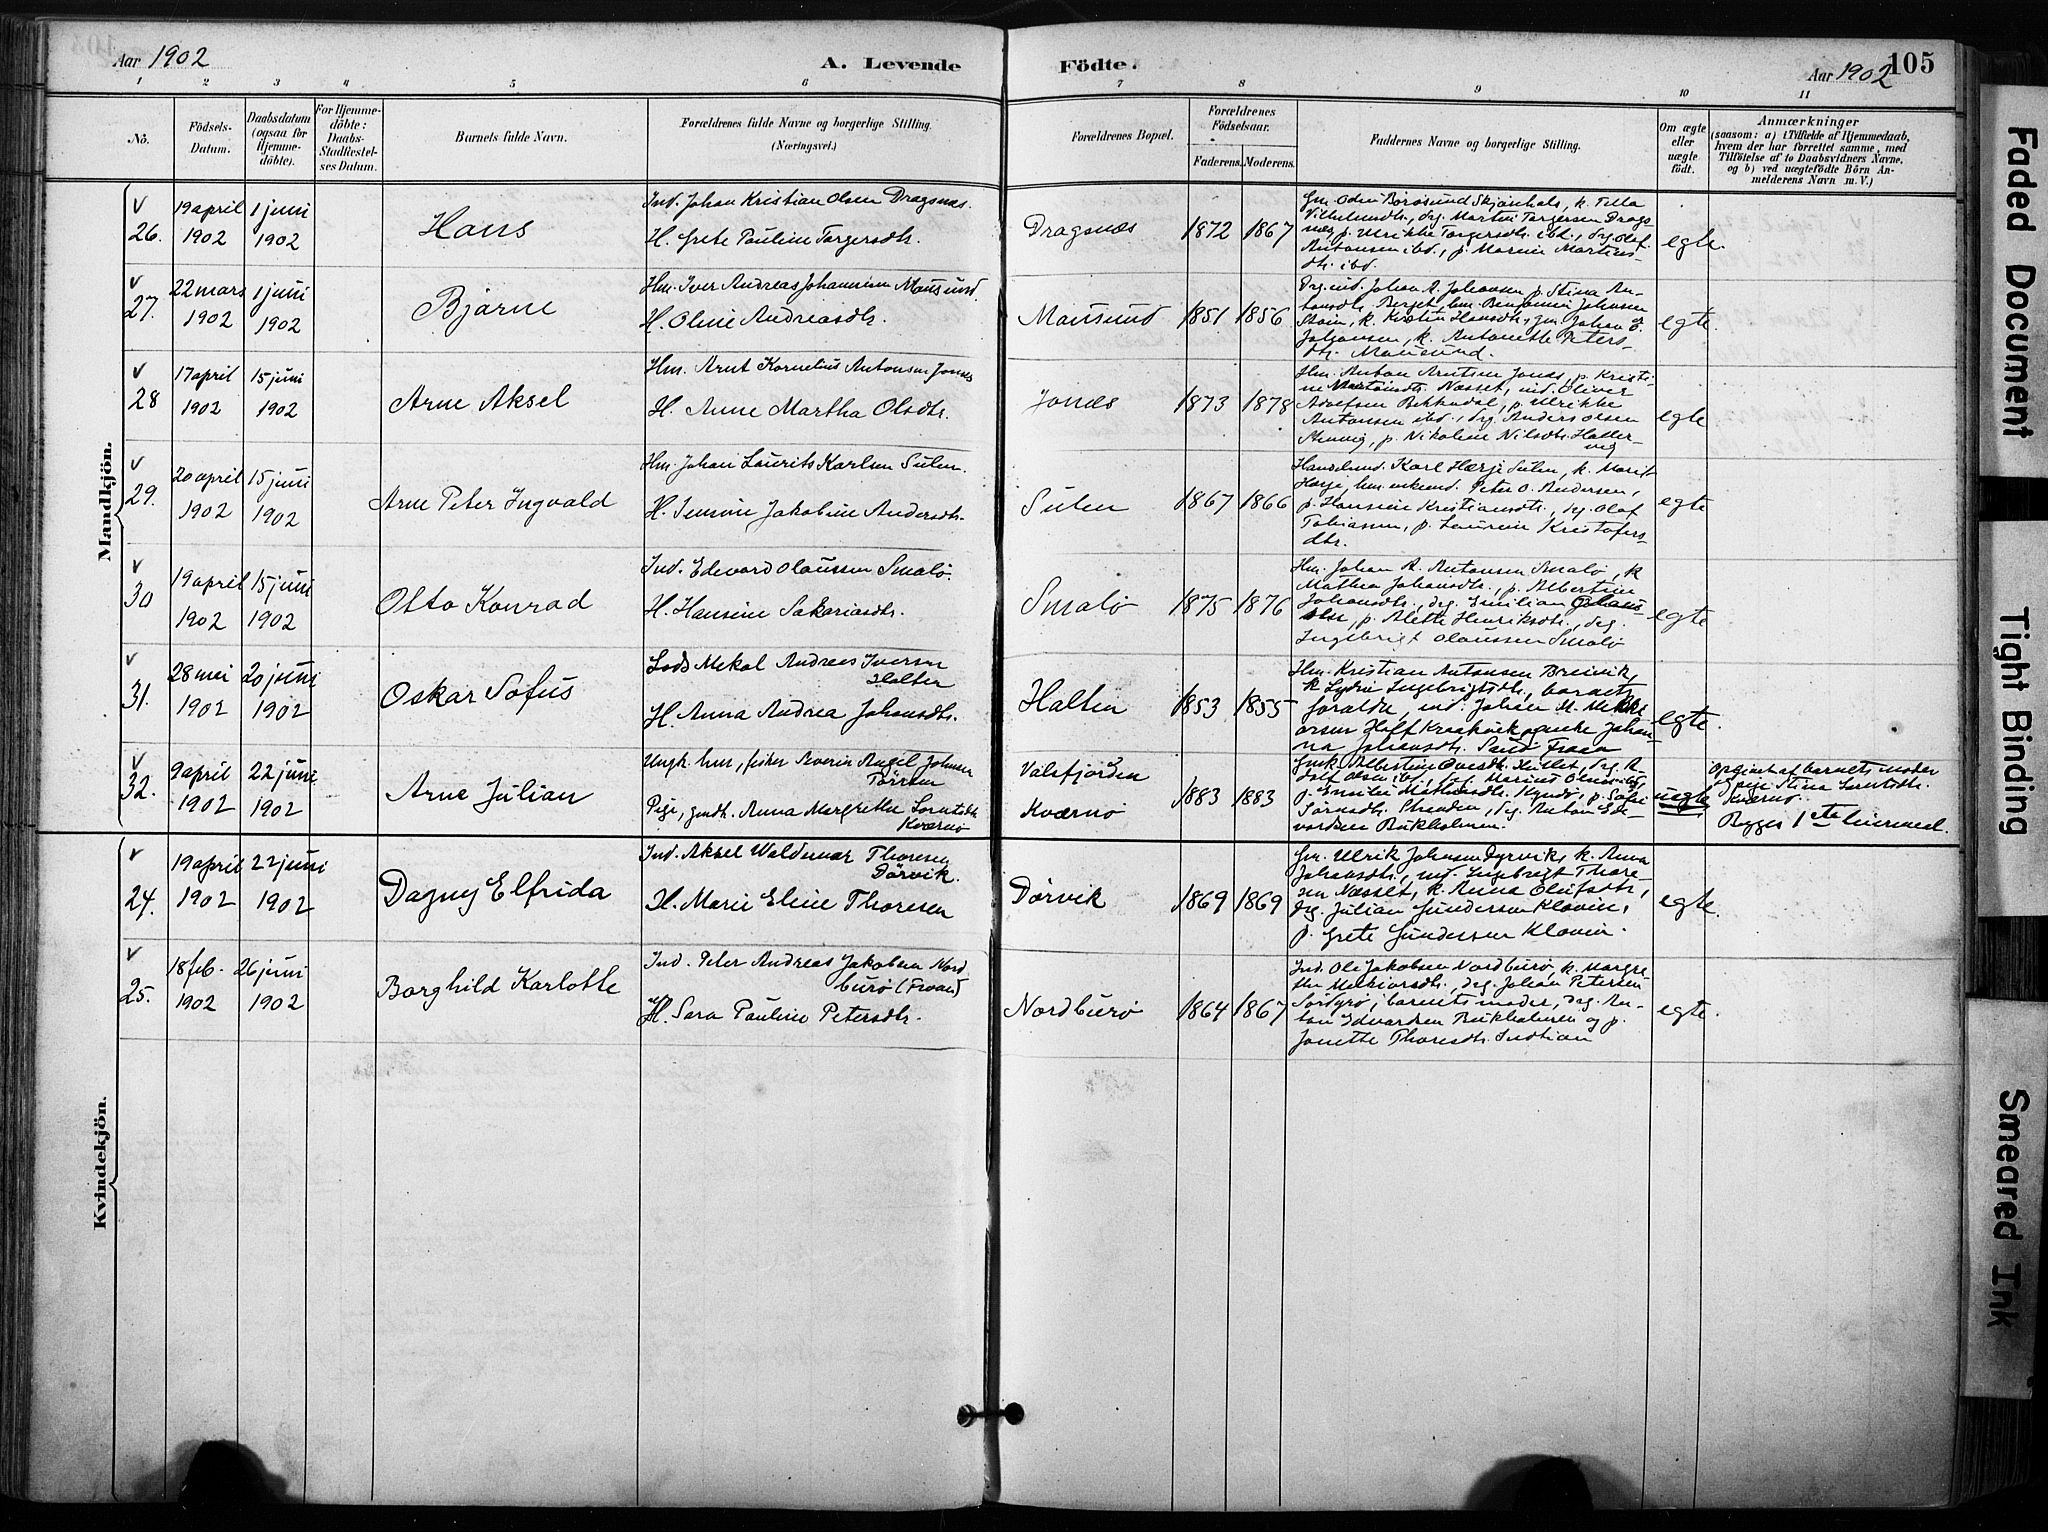 Aar 1902
A. Levende
Födte.
Aar 1902
105
1 2 3 4 5 6 7 8 9 10 11
No.
Födsels-
Datum.
Daabsdatum
(ogsaa for
Hjemme-
döbte).
For Hjemme-
döbte:
Daabs-
Stadfæstel-
ses Datum.
Barnets fulde Navn.
Forældrenes fulde Navne og borgerlige Stilling.
(Næringsvei.)
Forældrenes Bopæl.
Forældrenes
Födselsaar.
Faderens. Moderens.
Faddernes Navne og borgerlige Stilling.
Om ægte
eller
uægte
födt.
Anmærkninger
(saasom: a) i Tilfælde af Hjemmedaab,
hvem der har forrettet samme, med
Tilföielse af to Daabsvidners Navne,
og b) ved uægtefödte Börn An-
melderens Navn m. V.)
Mandkjön.
26.
19 april
1902
1 juni
1902
Hans
Ind. Johan Kristian Olsen Dragsnæs.
H. Grete Pauline Torgersdtr.
Dragsnæs
1872 1867
Gm. Oden Börösund Skjönhals, k.
Vilhelmsdtr., drg. Martin Torgersen Drags-
næs p. Ulrikke Torgersdtr. ibd., drg. Olaf
Antonsen ibd., p. Marnie Martins-
dtr. ibd.
egte.
27.
22 mars
1902
1 juni
1902
Bjarne
Hm. Iver Andreas Johannsen Mausund.
H. Oline Andreasdtr.
Mausund
1851 1856
Drg. ind. Johan A. Johansen, p. Stina
Berget, hm. Benjamin Johansen
Stein, k. Kirstin Hansdtr., gm. Johan
Johansen, k. Antonette Peters-
dtr. Mausund.
egte.
28
17 april
1902
15 juni
1902
Arne Aksel
Hm. Arnt Kornelius Antonsen Jonæs
H. Anne Martha Olsdtr.
Jonæs
1873 1878
Hm. Anton Arntsen Jonæs, p. Kristi-
ne Næsset, ind. Oliver
Adolfsen Bekkadal, p. Ulrikke
Antonsen ibd., drg. Anders Olsen
p. Nikoline Nilsdtr. Halter-
vig
egte
29.
20 april
1902
15 juni
1902
Arne Peter Ingvald
Hm. Johan Laurits Karlsen Sulen.
H. Jensine Jakobine Andersdtr.
Sulen
1867 1866
Karl Hærje Sulen, k. Marit
Hærje, hm. enkemd. Peter O. Andersen,
p. Hansine Kristiansdtr., drg. Olaf
Tobiassen, p. Laurine Kristofers-
dtr.
egte
30
19 april
1902
15 juni
1902
Otto Konrad
Ind. Edevard Olaussen Smalö.
H. Hansine Sakariasdtr.
Smalö
1875 1876
Hm. Johan A. Antonsen Smalö, k
Mathea Johansdtr., p. Albertine
Johansdtr., drg. Emilian Johans-
sen, p. Alette Henriksdtr., drg.
Ingebrigt Olaussen Smalö
egte
31.
28 mei
1902
20 juni
1902
Oskar Sofus
Lods Mekal Andreas Iversen
Halten
H. Anna Andrea Johansdtr.
Halten
1853 1855
Hm. Kristian Antonsen Breivik,
k Lydie Ingebrigtsdtr., barnets
foraldre, ind. Johan M. Mekk-
orsen Hoff Kraakvik, enke Johan-
na Johansdtr. Sand Froan
egte.
32.
9 april
1902
22 juni
1902
Arne Julian
Ungk. hm., fisker Severin Angel Johnsen
Törren
Pige, gmdt. Anna Margrethe Lorntsdtr.
Kværnö
Valsfjorden
Kværnö
1883 1883
Albertine Ovesdtr. Hullet, drg.
Olsen ibd., drg. Marius Olsen ibd.,
p. Emilie Mathiasdtr. Kyndö, p. Sofie
Sörensdtr. Stranden, drg. Anton Ed-
vardsen Bukholmen.
uegte
Opgivet af barnets moder
og pige Stina Lorntsdtr.
Kværnö.
Begges 1ste leiermaal.
Kvindekjön.
24.
19 april
1902
22 juni
1902
Dagny Elfrida
Ind. Aksel Waldemar Thoresen
Dörvik.
H. Marie Eline Thoresen
Dörvik
1869 1869
Gm. Ulrik Johansen Dyrvik, k. Anna
Johansdtr., ind. Ingebrigt Thore-
sen Næsset, k. Anna Olufsdtr.,
drg. Julian Gundersen Klaven,
p. Grete Gundersen Klaven.
egte.
25.
18 feb.
1902
26 juni
1902
Borghild Karlotte
Ind. Peter Andreas Jakobsen Nord
burö (Froan)
H. Sara Pauline Petersdtr.
Nordburö
1864 1867
Ind. Ole Jakobsen Nordburö, k. Margre-
the Melkiorsdtr., drg. Johan Petersen
Sördyrö, barnets moder, drg. An-
ton Edvardsen Bukholmen og p.
Jonette Thoresdtr. Indtian
egte.
Faded Document
Tight Binding
Smeared Ink